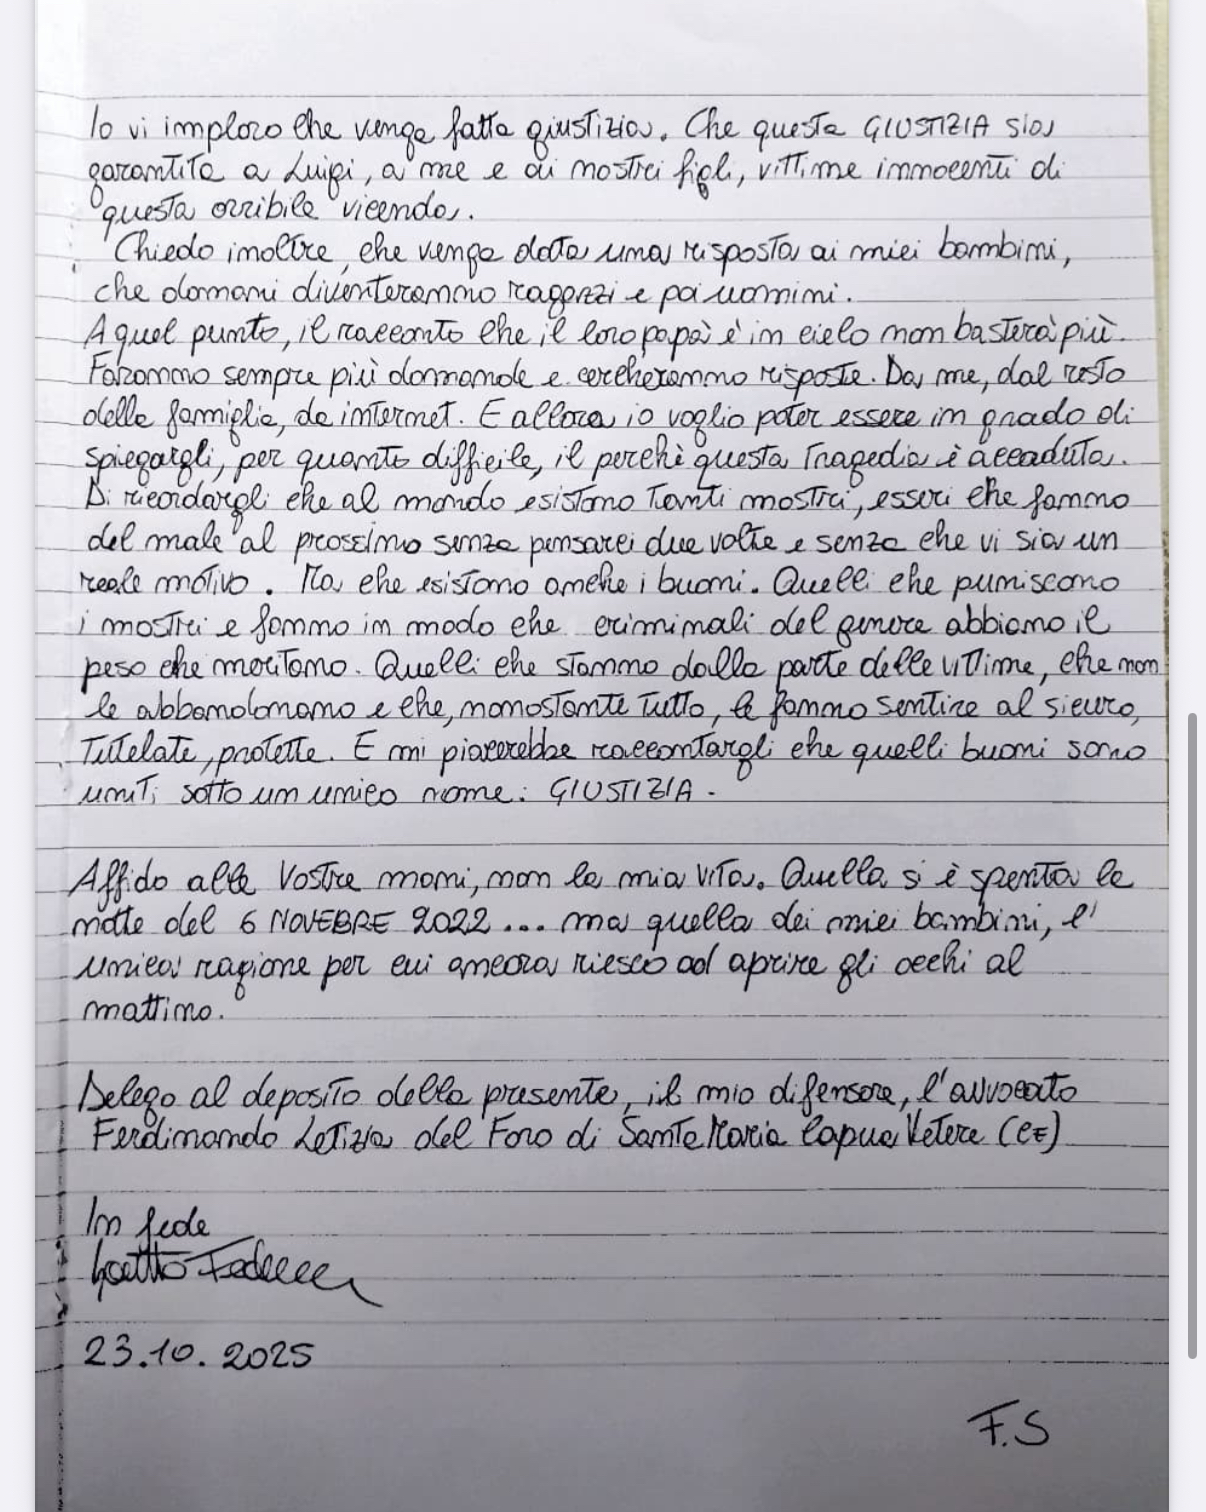 Io vi imploro che venga fatta giustizia. Che questa GIUSTIZIA sia
garantita a Luigi, a me e ai nostri figli, vittime innocenti di
questa orribile vicenda.
Chiedo inoltre, che venga data una risposta ai miei bambini,
che domani diventeranno ragazzi e poi uomini.
A quel punto, il racconto che il loro papà è in cielo non basterà più.
Faranno sempre più domande e cercheranno risposte. Da me, dal resto
della famiglia, da internet. E allora io voglio poter essere in grado di
spiegargli, per quanto difficile, il perchè questa tragedia è accaduta.
Di ricordargli che al mondo esistono tanti mostri, esseri che fanno
del male al prossimo senza pensarci due volte e senza che vi sia un
reale motivo. Ma che esistono anche i buoni. Quelli che puniscono
i mostri e fanno in modo che criminali del genere abbiano il
peso che meritano. Quelli che stanno dalla parte delle vittime, che non
le abbandonano e che, nonostante tutto, le fanno sentire al sicuro,
tutelate, protette. E mi piacerebbe raccontargli che quelli buoni sono
uniti sotto un unico nome: GIUSTIZIA.
Affido alle Vostre mani, non la mia vita. Quella si è spenta la
notte del 6 NOVEBRE 2022... ma quella dei miei bambini, l'
unica ragione per cui ancora riesco ad aprire gli occhi al
mattino.
Delego al deposito della presente, il mio difensore, l'avvocato
Ferdinando Letizia del Foro di Santa Maria Capua Vetere (CE)
In fede
Federica
23.10.2025
F.S